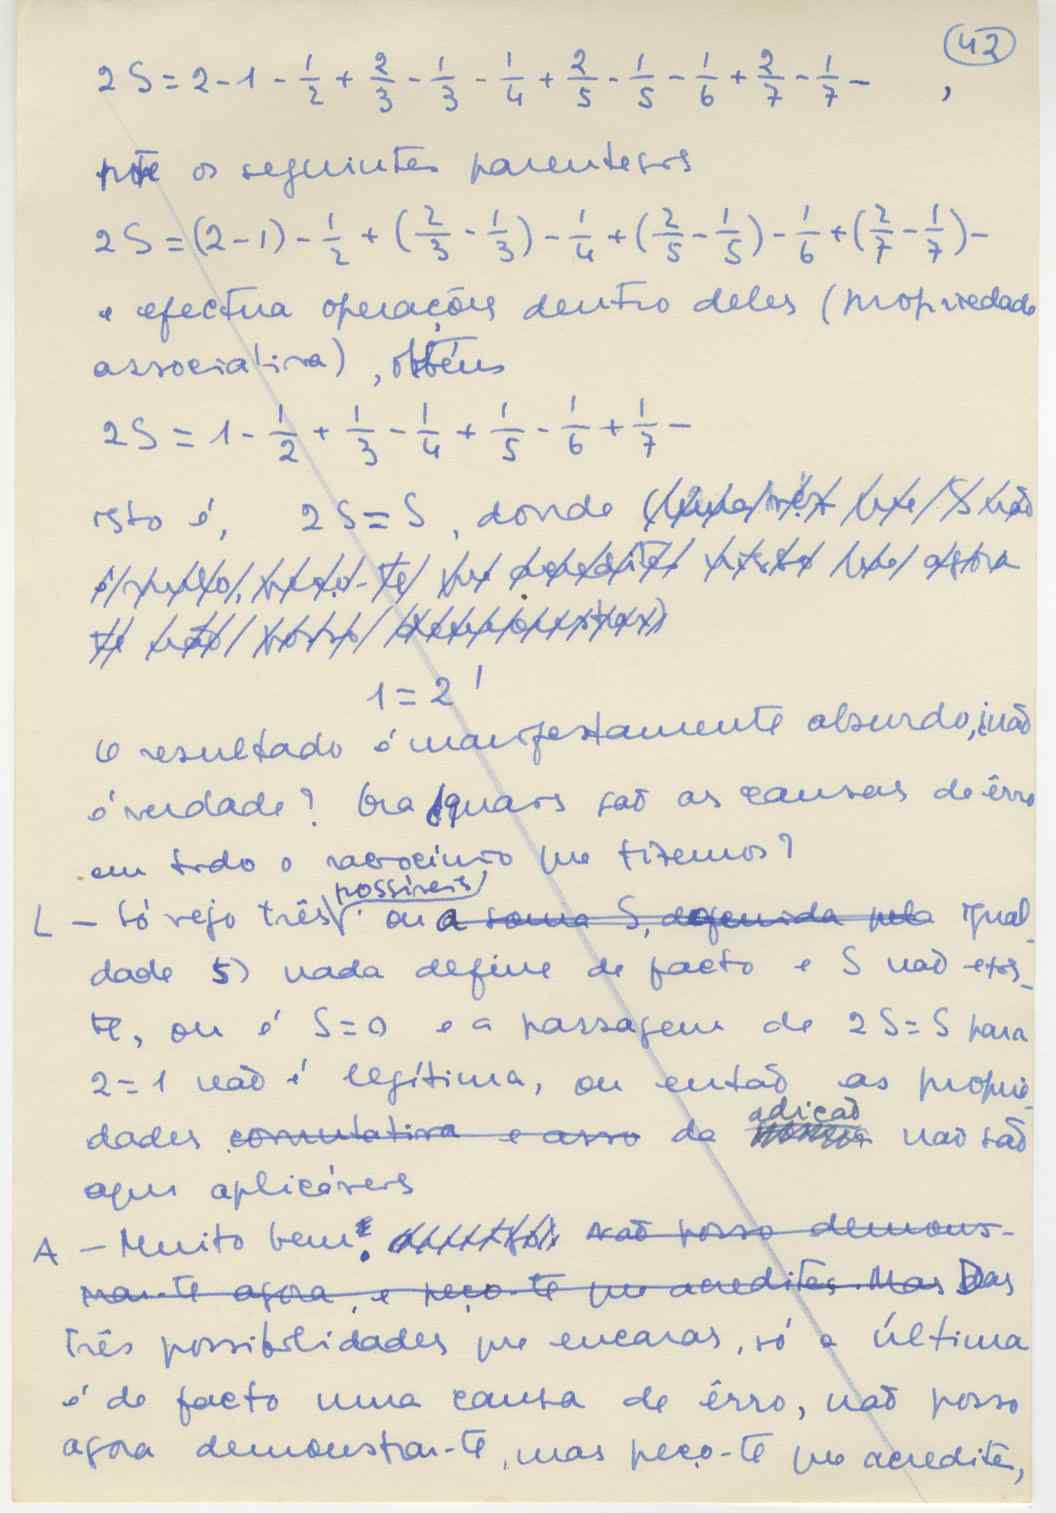 42
2S = 2 - 1 - 1/2 + 2/3 - 1/3 - 1/4 + 2/5 - 1/5 - 1/6 + 2/7 - 1/7 - ,
põe os seguintes parenteses
2S = (2-1) - 1/2 + (2/3 - 1/3) - 1/4 + (2/5 - 1/5) - 1/6 + (2/7 - 1/7) -
e efectua operações dentro deles (propriedade
associativa), obténs
2S = 1 - 1/2 + 1/3 - 1/4 + 1/5 - 1/6 + 1/7 -
isto é, 2S = S, donde que S não
é peço-te que acredites nisso que agora
te não posso
1 = 2!
O resultado é manifestamente absurdo, não
é verdade? Ora quais são as causas de êrro
em todo o raciocínio que fizemos?
possíveis
L - Só vejo três: ou a soma S, definida pela igual-
dade 5) nada define de facto e S não exis-
te, ou é S=0 e a passagem de 2S=S para
2=1 não é legítima, ou então as proprie-
adição
dades comutativa e asso da não são
aqui aplicáveis
A - Muito bem! Não posso demons-
trar-te agora, e peço-te que acredites. Mas Das
três possibilidades que encaras, só a última
é de facto uma causa de êrro, não posso
agora demonstrar-te, mas peço-te que acredites,